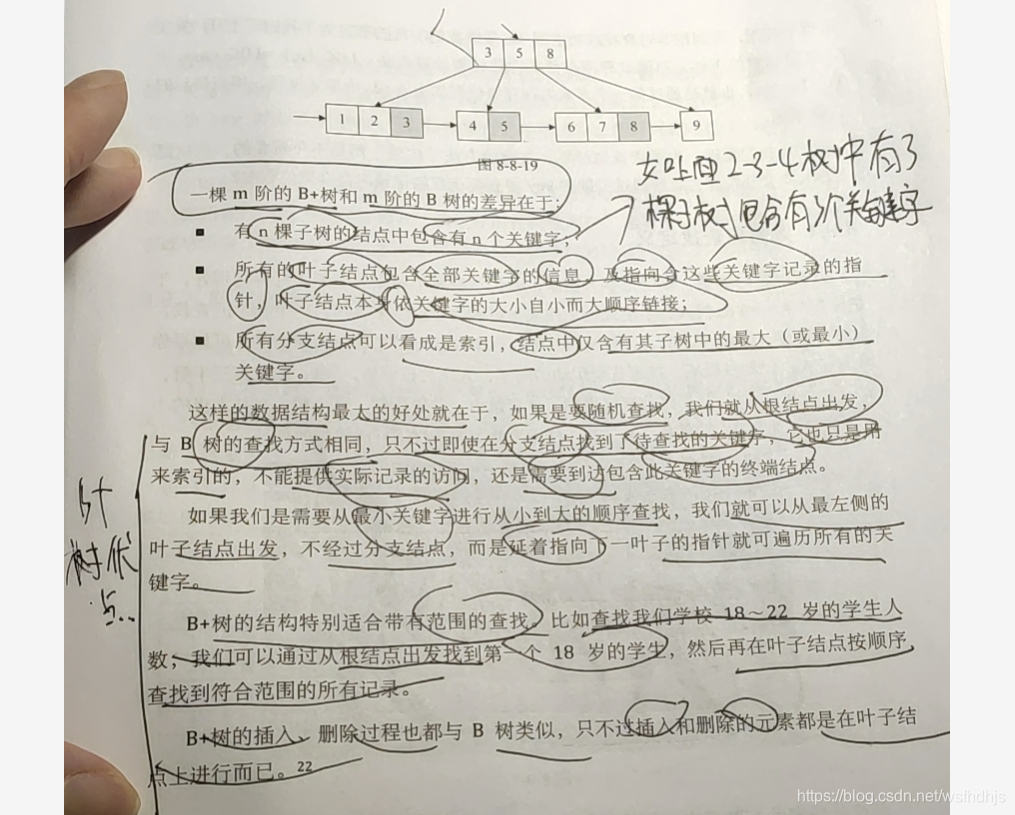 3 5 8
1 2 3 4 5 6 7 8 9
图 8-8-19
如上面2-3-4树中有3
棵子树包含有3个关键字
一棵 m 阶的 B+树和 m 阶的 B 树的差异在于:
■ 有 n 棵子树的结点中包含有 n 个关键字;
■ 所有的叶子结点包含全部关键字的信息，及指向含这些关键字记录的指
针，叶子结点本身依关键字的大小自小而大顺序链接;
■ 所有分支结点可以看成是索引，结点中仅含有其子树中的最大（或最小）
关键字。
这样的数据结构最大的好处就在于，如果是要随机查找，我们就从根结点出发，
与 B 树的查找方式相同，只不过即使在分支结点找到了待查找的关键字，它也只是用
来索引的，不能提供实际记录的访问，还是需要到达包含此关键字的终端结点。
如果我们是需要从最小关键字进行从小到大的顺序查找，我们就可以从最左侧的
叶子结点出发，不经过分支结点，而是延着指向下一叶子的指针就可遍历所有的关
键字。
B+树的结构特别适合带有范围的查找。比如查找我们学校 18～22 岁的学生人
数，我们可以通过从根结点出发找到第一个 18 岁的学生，然后再在叶子结点按顺序
查找到符合范围的所有记录。
B+树的插入、删除过程也都与 B 树类似，只不过插入和删除的元素都是在叶子结
点上进行而已。22
B+
树优
点..
https://blog.csdn.net/wsfhdhjs